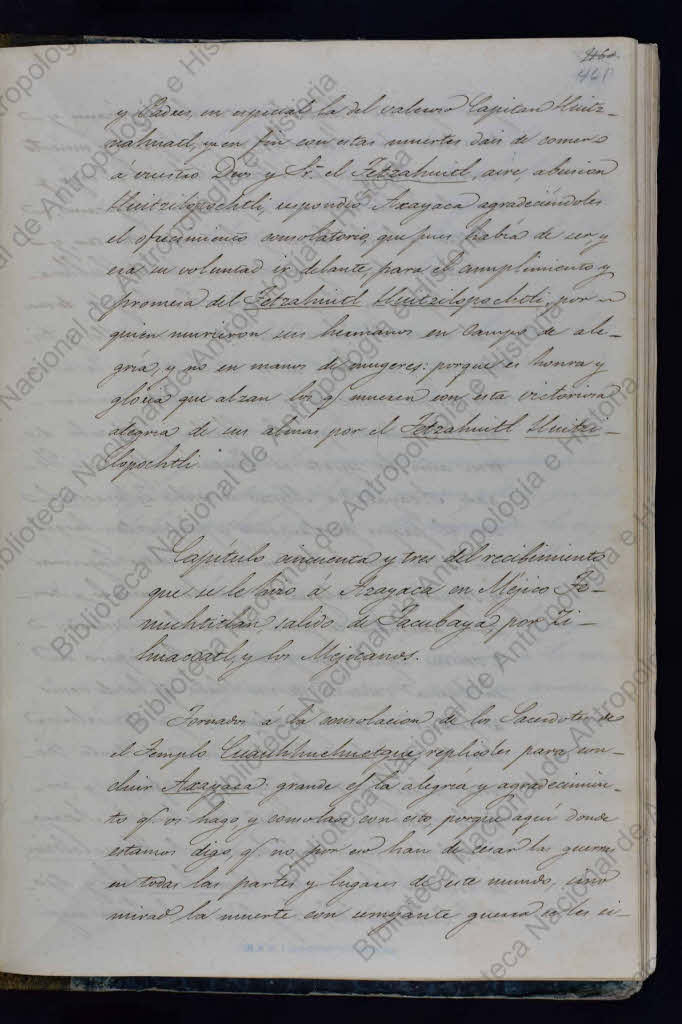 461
y Padres, en especial la del valeroso Capitan Huitz-
nahuatl, que en fin con estas muertes dais de comer
á vuestro Dios y Sr. el Tetzahuitl, aire, abusion
Huitzilopochtli; respondió Axayaca agradeciéndoles
el ofrecimiento consolatorio, que pues habia de ser y
era su voluntad ir delante, para el cumplimiento y
promesa del Tetzahuitl Huitzilopochtli, por
quien murieron sus hermanos en campo de ale-
gría, y no en manos de mugeres: porque es honra y
gloria que alzan los q. mueren con esta victoriosa
alegria de sus almas por el Tetzahuitl Huitzi-
lopochtli.
Capítulo cincuenta y tres del recibimiento
que se le hizo á Axayaca en Méjico Te-
nuchtitlán, salido de Tacubaya, por Zi-
huacoatl, y los Mejicanos.
Tornados á la consolacion de los Sacerdotes de
el Templo Cuauhhuehuetque, replicoles para con-
cluir Axayaca: grande es la alegría y agradecimien-
to q. os hago, y consolaos con esto, porque aquí donde
estamos digo, q. no por eso han de cesar las guerras
en todas las partes y lugares de este mundo, sino
mirad la muerte con semejante guerra se les si-
Biblioteca Nacional de Antropología e Historia